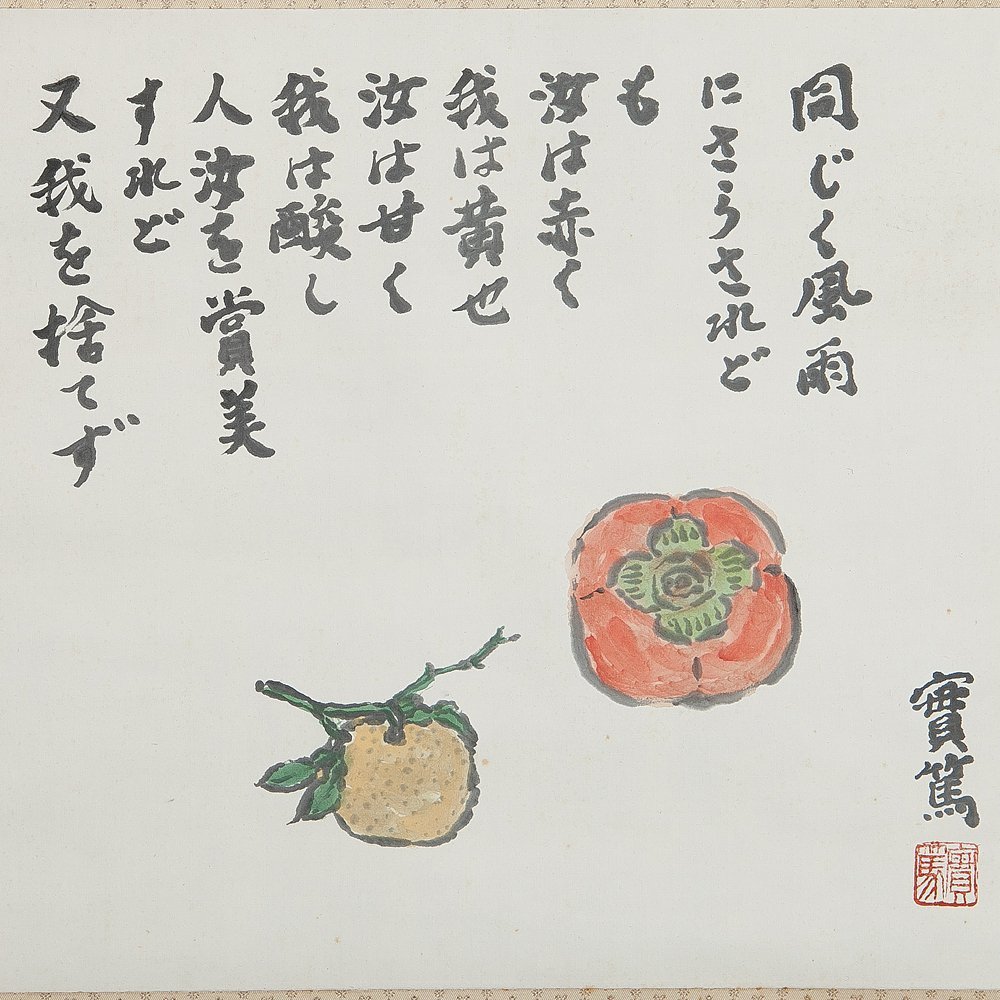 同じく風雨
にさらされど
も
汝は赤く
我は黄也
汝は甘く
我は酸し
人汝を賞美
すれど
又我を捨てず
實篤
實篤